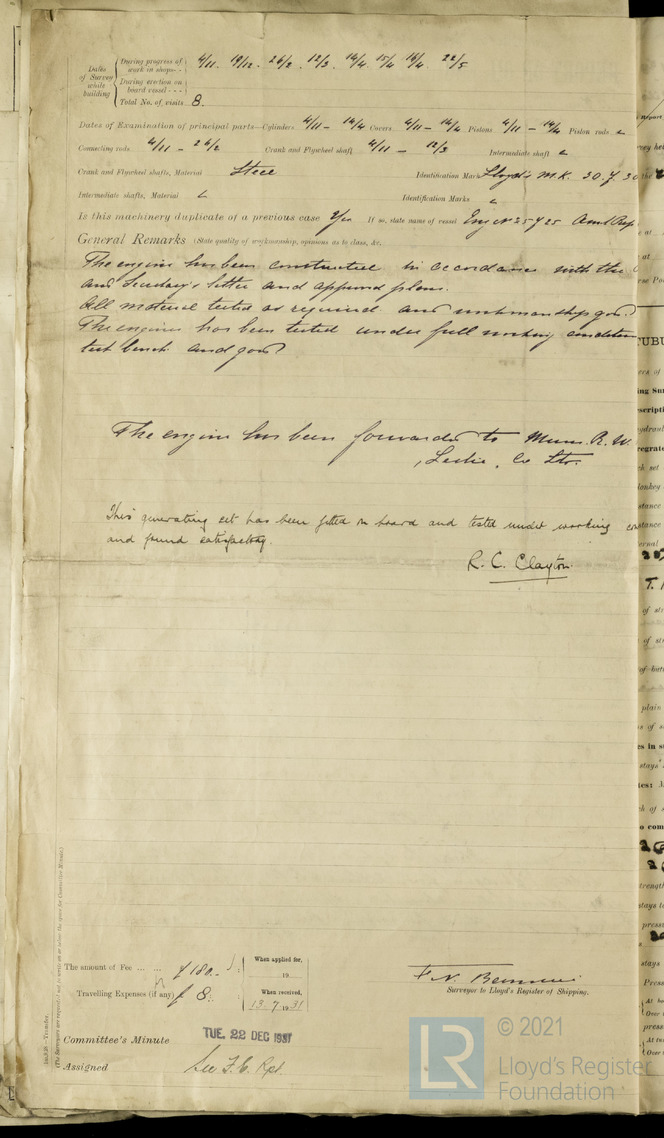 Dates of Survey while building
During progress of work in shops - - 4/11. 19/12. 26/2. 12/3. 14/4. 15/4. 18/4. 22/5
During erection on board vessel - - -
Total No. of visits 8.
Dates of Examination of principal parts—Cylinders 4/11 - 14/4 Covers 4/11 - 14/4 Pistons 4/11 - 14/4 Piston rods
Connecting rods 4/11 - 26/2 Crank and Flywheel shaft 4/11 - 12/3 Intermediate shaft
Crank and Flywheel shafts, Material Steel Identification Mark Lloyd's M.K. 30.
Intermediate shafts, Material Identification Marks
Is this machinery duplicate of a previous case Yes If so, state name of vessel Eng No 25
General Remarks (State quality of workmanship, opinions as to class, &c.
The engine has been constructed in accordance with the
and Secretary's letter and approved plans.
All material tested as required and workmanship good.
The engine has been tested under full working condition
test bench and good
The engine has been forwarded to Messrs. R. W.
Leslie, Co Ltd.
This generating set has been fitted on board and tested under working
and found satisfactory.
R. C. Clayton
The amount of Fee ... ... £ 180.-
When applied for,
19
Travelling Expenses (if any) £ 8:
When received,
13.7.1931
Surveyor to Lloyd's Register of Shipping.
Committee's Minute TUE. 22 DEC 1931
Assigned See F.E. Rpt.
© 2021
LR
Lloyd's Register
Foundation